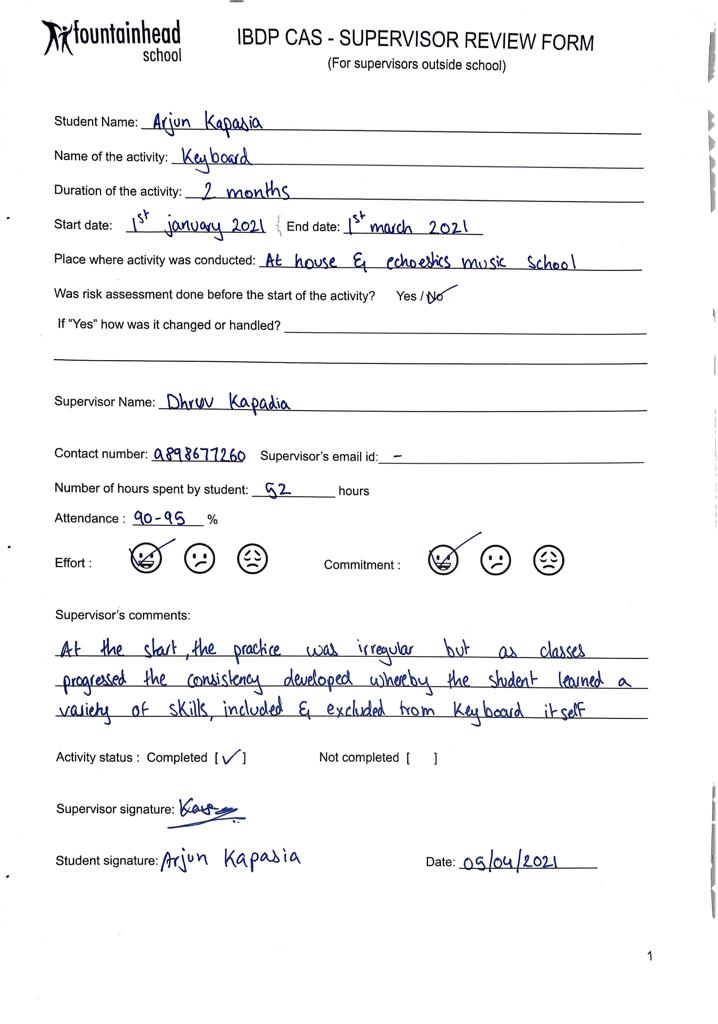 fountainhead
school
IBDP CAS - SUPERVISOR REVIEW FORM
(For supervisors outside school)
Student Name: Arjun Kapasia
Name of the activity: Keyboard
Duration of the activity: 2 months
Start date: 1st january 2021 End date: 1st march 2021
Place where activity was conducted: At house & echoestics music School
Was risk assessment done before the start of the activity? Yes / No
If "Yes" how was it changed or handled?
Supervisor Name: Dhruv Kapadia
Contact number: 9898677260 Supervisor's email id: -
Number of hours spent by student: 52 hours
Attendance : 90-95 %
Effort : Commitment :
Supervisor's comments:
At the start, the practice was irregular but as classes
progressed the consistency developed whereby the student learned a
variety of skills, included & excluded from Keyboard itself
Activity status : Completed [✓] Not completed [ ]
Supervisor signature:
Student signature: Arjun Kapasia Date: 05/04/2021
1